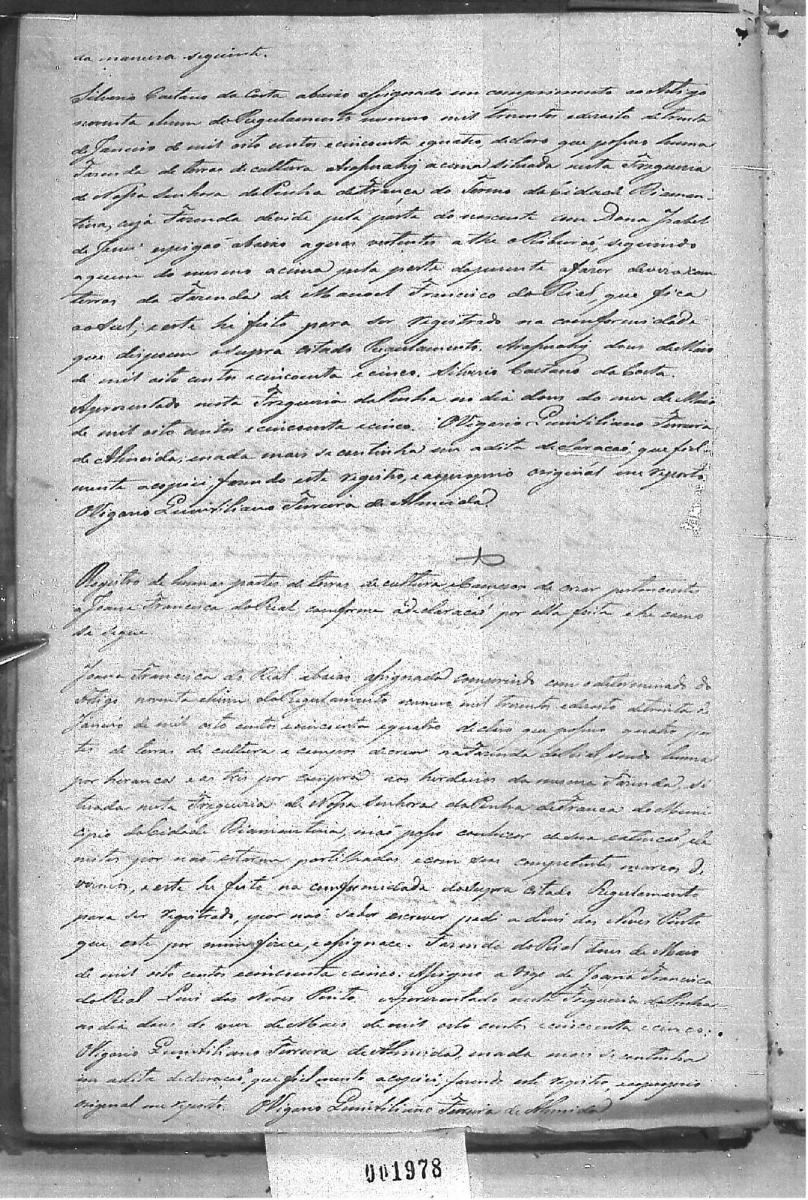 da maneira seguinte.
Silverio Caetano da Costa abaixo assignado em comprimento ao Artigo
noventa ehum do Regulamento numero mil trezentos edezoito detrinta
de Janeiro de mil oito centos ecincoenta equatro, declaro que posso huma
Fazenda de terras de cultura Arassuahy acima situada nesta Freguezia
de Nossa Senhora da Penha de França do Termo da Cidade Diaman-
tina, cuja Fazenda devide pela parte do nascente com Dona Izabel
de espigaõ abaixo agoas vertentes athe oRibeiraõ, seguindo
aquem do mesmo acima pela parte dopoente afazer deviza com
terras da Fazenda de Manoel Francisco do Rial, que fica
ao Sul; e este he feito para ser registrado na comformidade
que despoem osupra citado Regulamento. Arassuahy dous de Maio
de mil oito centos ecincoenta e cinco. Silverio Caetano da Costa.
Aprezentado nesta Freguezia da Penha no dia dous do mez de Maio
de mil oito centos ecincoenta ecinco. OVigario Quintiliano Ferreira
de Almeida; enada mais se continha em adita declaracaõ, que fiel-
mente acopiei fazendo este registro, e aoproprio original me reporto.
OVigario Quintiliano Ferreira de Almeida.
Registro de humas partes de terras de cultura, eCampos de criar pertencentes
a Joana Francisca do Rial, comforme adeclaracaõ por ella feita e he como
se segue.
Joana Francisca do Rial abaixo assignada comprindo com odeterminado do
Artigo noventa ehum doRegulamento numero mil trezentos edezoito detrinta de
Janeiro de mil oito centos ecincoenta equatro declaro que posso quatro par-
tes de terras de cultura e campos decriar naFazenda doRial sendo huma
por heranca e as tres por compra aos herdeiros da mesma Fazenda, si-
tuada nesta Freguezia de Nossa Senhora da Penha deFranca do Muni-
cipio daCidade Diamantina, naõ posso conhecer de sua extencaõ, eli-
mites por naõ estarem partilhados ecom seos competentes marcos di-
vizorios, e este he feito na comformidade dosupra citado Regulamento
para ser registrado, epor naõ saber escrever pedi a Luis das Neves Pinto
que este por mim fizece, e assignace. Fazenda do Rial dous de Maio
de mil oito centos ecincoenta ecinco. Assigno a rogo de Joana Francisca
do Rial Luis das Neves Pinto. Aprezentado nesta Freguezia da Penha
ao dia dous do mez de Maio de mil oito centos ecincoenta ecinco.
OVigario Quintiliano Ferreira de Almeida, enada mais se continha
em adita declaracaõ, que fiel mente acopiei fazendo este registro, eaoproprio
original me reporto. OVigario Quintiliano Ferreira de Almeida
001978